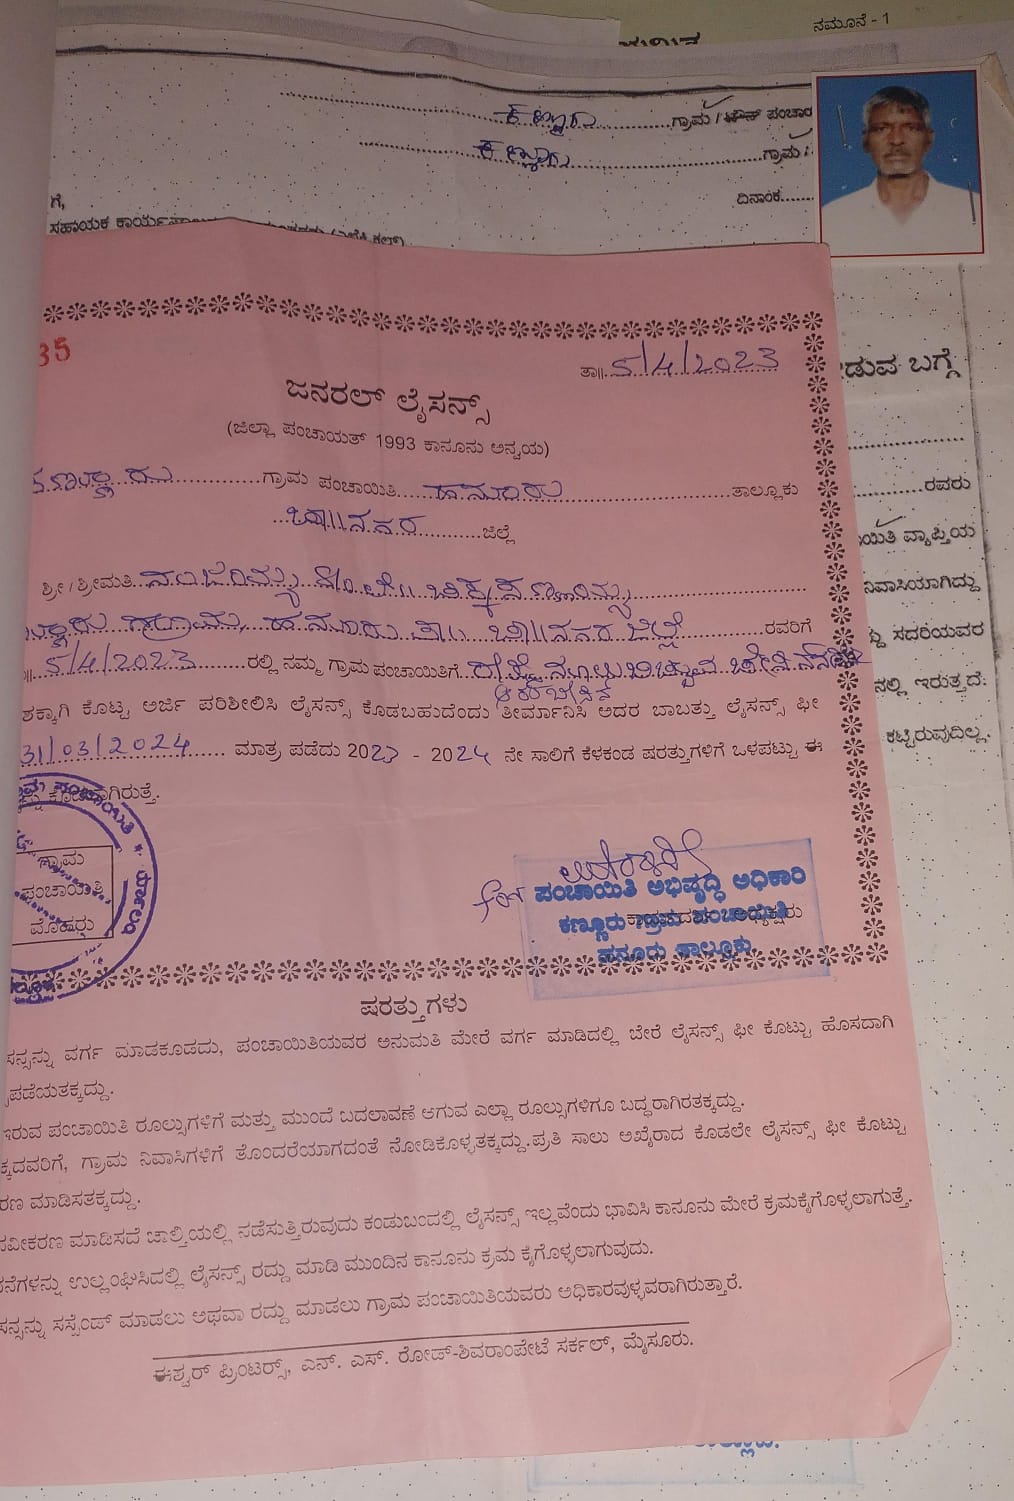 ನಮೂನೆ - 1
ಕಣ್ಣೂರು ಗ್ರಾಮ / ಟೌನ್ ಪಂಚಾರ
ಕಣ್ಣೂರು ಗ್ರಾಮ /
ದಿನಾಂಕ
ಗೆ,
ಸಹಾಯಕ
35
ತಾ॥ 5/4/2023
ಜನರಲ್ ಲೈಸನ್ಸ್
(ಜಿಲ್ಲಾ ಪಂಚಾಯತ್ 1993 ಕಾನೂನು ಅನ್ವಯ)
ಗ್ರಾಮ ಪಂಚಾಯಿತಿ ಹನೂರು ತಾಲ್ಲೂಕು
ಚಾ॥ನಗರ ಜಿಲ್ಲೆ
ಶ್ರೀ / ಶ್ರೀಮತಿ
ಗ್ರಾಮ, ಹನೂರು ತಾ॥ ಚಾ॥ನಗರ ಜಿಲ್ಲೆ ರವರಿಗೆ
5/4/2023 ರಲ್ಲಿ ನಮ್ಮ ಗ್ರಾಮ ಪಂಚಾಯಿತಿಗೆ ರೇಷ್ಮೆ ನೂಲು ಬಿಚ್ಚುವ
ಶಕ್ಕಾಗಿ ಕೊಟ್ಟ ಅರ್ಜಿ ಪರಿಶೀಲಿಸಿ ಲೈಸನ್ಸ್ ಕೊಡಬಹುದೆಂದು ತೀರ್ಮಾನಿಸಿ ಅದರ ಬಾಬತ್ತು ಲೈಸನ್ಸ್ ಫೀ
31/03/2024 ಮಾತ್ರ ಪಡೆದು 2023 - 2024 ನೇ ಸಾಲಿಗೆ ಕೆಳಕಂಡ ಷರತ್ತುಗಳಿಗೆ ಒಳಪಟ್ಟು ಈ
ಕೊಡಲಾಗಿರುತ್ತೆ.
ಗ್ರಾಮ
ಪಂಚಾಯಿತಿ
ಮೊಹರು
for
ಪಂಚಾಯಿತಿ ಅಭಿವೃದ್ಧಿ ಅಧಿಕಾರಿ
ಕಣ್ಣೂರು ಗ್ರಾಮ ಪಂಚಾಯಿತಿ
ಹನೂರು ತಾಲ್ಲೂಕು.
ಷರತ್ತುಗಳು
ಸನ್ಸನ್ನು ವರ್ಗ ಮಾಡಕೂಡದು, ಪಂಚಾಯಿತಿಯವರ ಅನುಮತಿ ಮೇರೆ ವರ್ಗ ಮಾಡಿದಲ್ಲಿ ಬೇರೆ ಲೈಸನ್ಸ್ ಫೀ ಕೊಟ್ಟು ಹೊಸದಾಗಿ
ಪಡೆಯತಕ್ಕದ್ದು.
ಇರುವ ಪಂಚಾಯಿತಿ ರೂಲ್ಸುಗಳಿಗೆ ಮತ್ತು ಮುಂದೆ ಬದಲಾವಣೆ ಆಗುವ ಎಲ್ಲಾ ರೂಲ್ಸುಗಳಿಗೂ ಬದ್ಧರಾಗಿರತಕ್ಕದ್ದು.
ಕ್ಕದವರಿಗೆ, ಗ್ರಾಮ ನಿವಾಸಿಗಳಿಗೆ ತೊಂದರೆಯಾಗದಂತೆ ನೋಡಿಕೊಳ್ಳತಕ್ಕದ್ದು.ಪ್ರತಿ ಸಾಲು ಅಖೈರಾದ ಕೊಡಲೇ ಲೈಸನ್ಸ್ ಫೀ ಕೊಟ್ಟು
ರಣ ಮಾಡಿಸತಕ್ಕದ್ದು.
ನವೀಕರಣ ಮಾಡಿಸದೆ ಚಾಲ್ತಿಯಲ್ಲಿ ನಡೆಸುತ್ತಿರುವುದು ಕಂಡುಬಂದಲ್ಲಿ ಲೈಸನ್ಸ್ ಇಲ್ಲವೆಂದು ಭಾವಿಸಿ ಕಾನೂನು ಮೇರೆ ಕ್ರಮಕೈಗೊಳ್ಳಲಾಗುತ್ತೆ.
ನೆಗಳನ್ನು ಉಲ್ಲಂಘಿಸಿದಲ್ಲಿ ಲೈಸನ್ಸ್ ರದ್ದು ಮಾಡಿ ಮುಂದಿನ ಕಾನೂನು ಕ್ರಮ ಕೈಗೊಳ್ಳಲಾಗುವುದು.
ಸನ್ಸನ್ನು ಸಸ್ಪೆಂಡ್ ಮಾಡಲು ಅಥವಾ ರದ್ದು ಮಾಡಲು ಗ್ರಾಮ ಪಂಚಾಯಿತಿಯವರು ಅಧಿಕಾರವುಳ್ಳವರಾಗಿರುತ್ತಾರೆ.
ಈಶ್ವರ್ ಪ್ರಿಂಟರ್ಸ್, ಎನ್. ಎಸ್. ರೋಡ್-ಶಿವರಾಂಪೇಟೆ ಸರ್ಕಲ್, ಮೈಸೂರು.
ಡುವ ಬಗ್ಗೆ
ರವರು
ಯಿತಿ ವ್ಯಾಪ್ತಿಯ
ನಿವಾಸಿಯಾಗಿದ್ದು
ಸದರಿಯವರ
ನಲ್ಲಿ ಇರುತ್ತದೆ.
ಕಟ್ಟಿರುವುದಿಲ್ಲ.